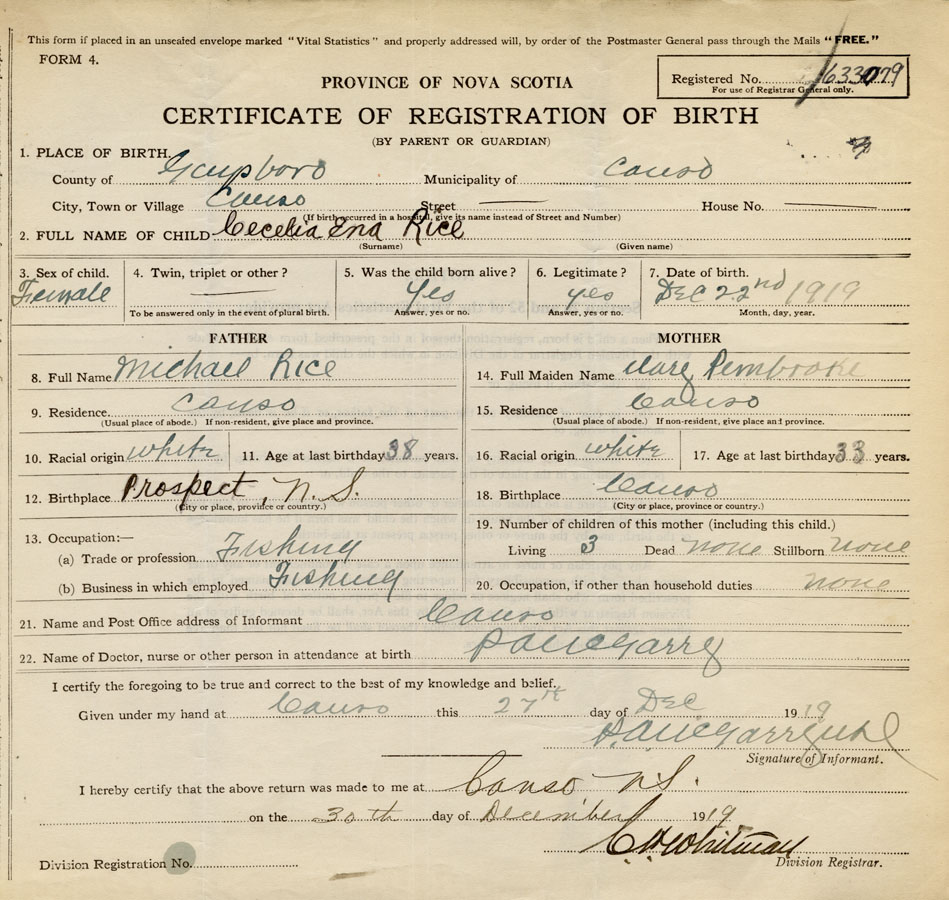 This form if placed in an unsealed envelope marked "Vital Statistics" and properly addressed will, by order of the Postmaster General pass through the Mails "FREE."
FORM 4.
Registered No. 633079
For use of Registrar General only.
PROVINCE OF NOVA SCOTIA
CERTIFICATE OF REGISTRATION OF BIRTH
(BY PARENT OR GUARDIAN)
1. PLACE OF BIRTH.
County of Guysboro Municipality of Canso
City, Town or Village Canso Street — House No. —
(If birth occurred in a hospital, give its name instead of Street and Number)
2. FULL NAME OF CHILD Cecelia Ena Rice
(Surname) (Given name)
3. Sex of child. 4. Twin, triplet or other? 5. Was the child born alive? 6. Legitimate? 7. Date of birth.
Female — Yes yes Dec 22nd 1919
To be answered only in the event of plural birth. Answer, yes or no. Answer, yes or no. Month, day, year.
FATHER MOTHER
8. Full Name Michael Rice 14. Full Maiden Name Mary Pembroke
9. Residence. Canso 15. Residence Canso
(Usual place of abode.) If non-resident, give place and province. (Usual place of abode.) If non-resident, give place and province.
10. Racial origin white 11. Age at last birthday 38 years. 16. Racial origin white 17. Age at last birthday 33 years.
12. Birthplace Prospect, N.S. 18. Birthplace Canso
(City or place, province or country.) (City or place, province or country.)
19. Number of children of this mother (including this child.)
13. Occupation:—
(a) Trade or profession Fishing Living 3 Dead none Stillborn none
(b) Business in which employed Fishing 20. Occupation, if other than household duties none
21. Name and Post Office address of Informant Canso
22. Name of Doctor, nurse or other person in attendance at birth
I certify the foregoing to be true and correct to the best of my knowledge and belief.
Given under my hand at Canso this 27th day of Dec 1919
Signature of Informant.
I hereby certify that the above return was made to me at Canso N.S.
on the 30th day of December 1919
Whitman
Division Registration No. Division Registrar.